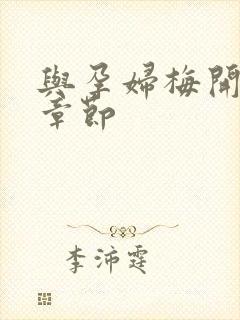 與孕婦梅開
章節
李沛霆